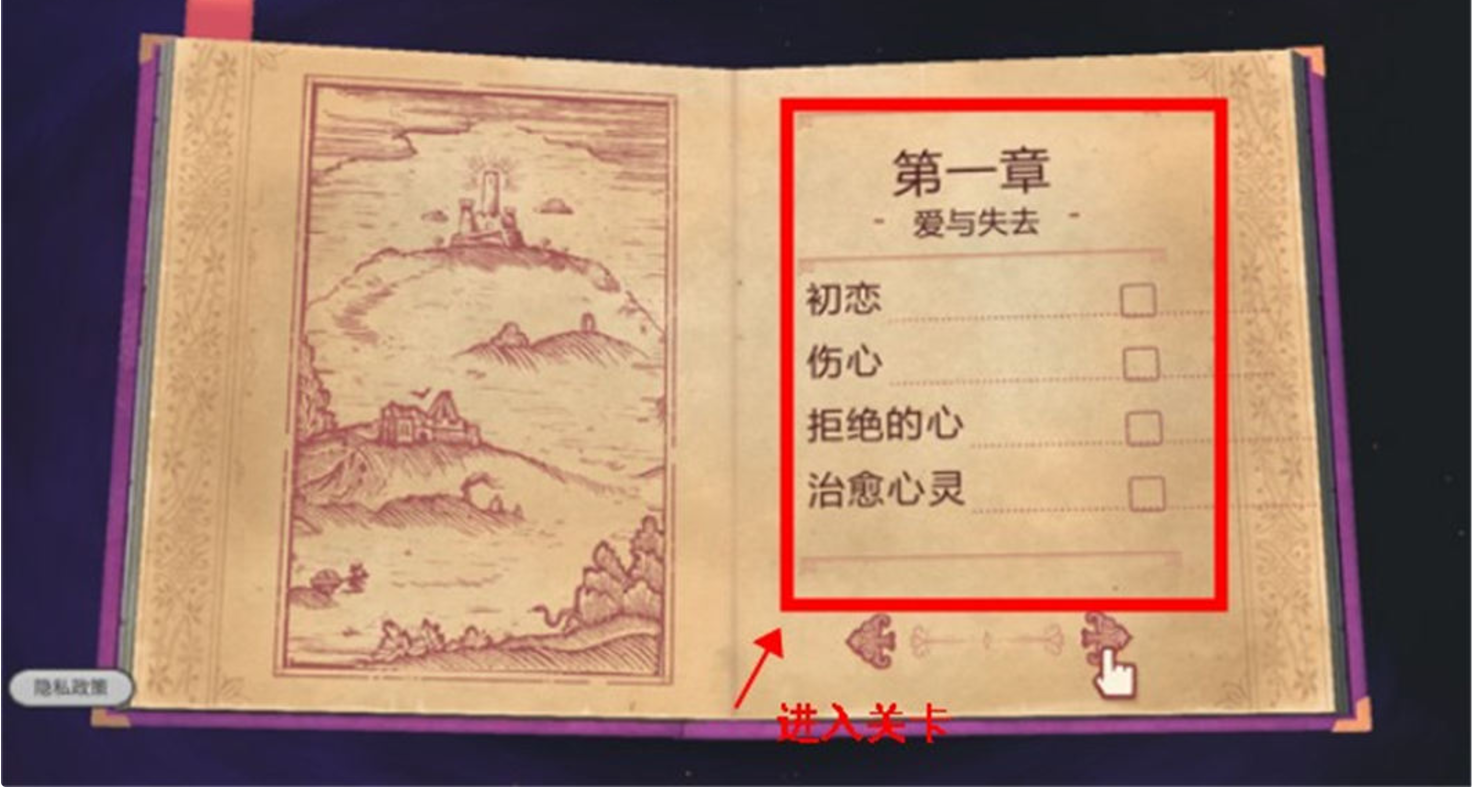 第一章
- 爱与失去 -
初恋
伤心
拒绝的心
治愈心灵
隐私政策
进入关卡